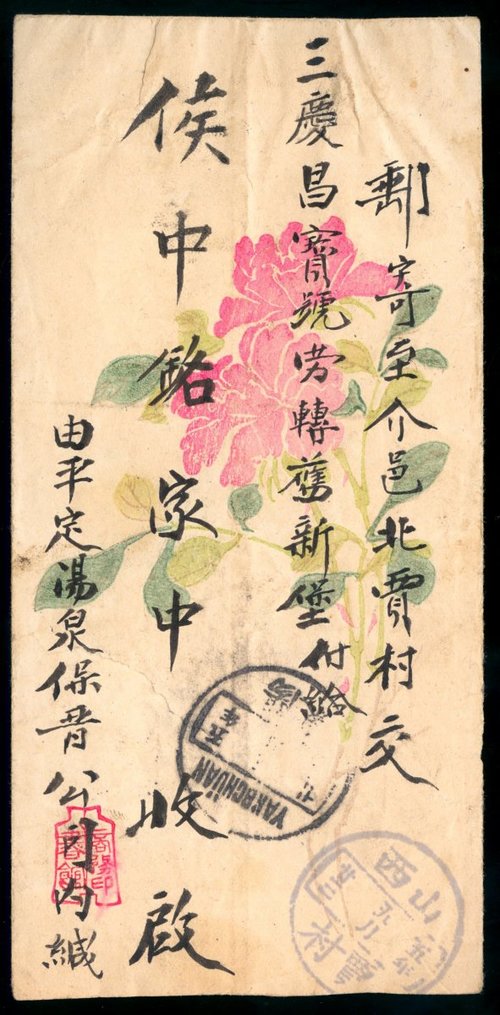 郵寄至介邑北賈村交
三慶昌寶號勞轉舊新堡付給
侯中銘家中收啟
由平定湯泉保晋公司內緘
YANGCHUAN
山西
賈村